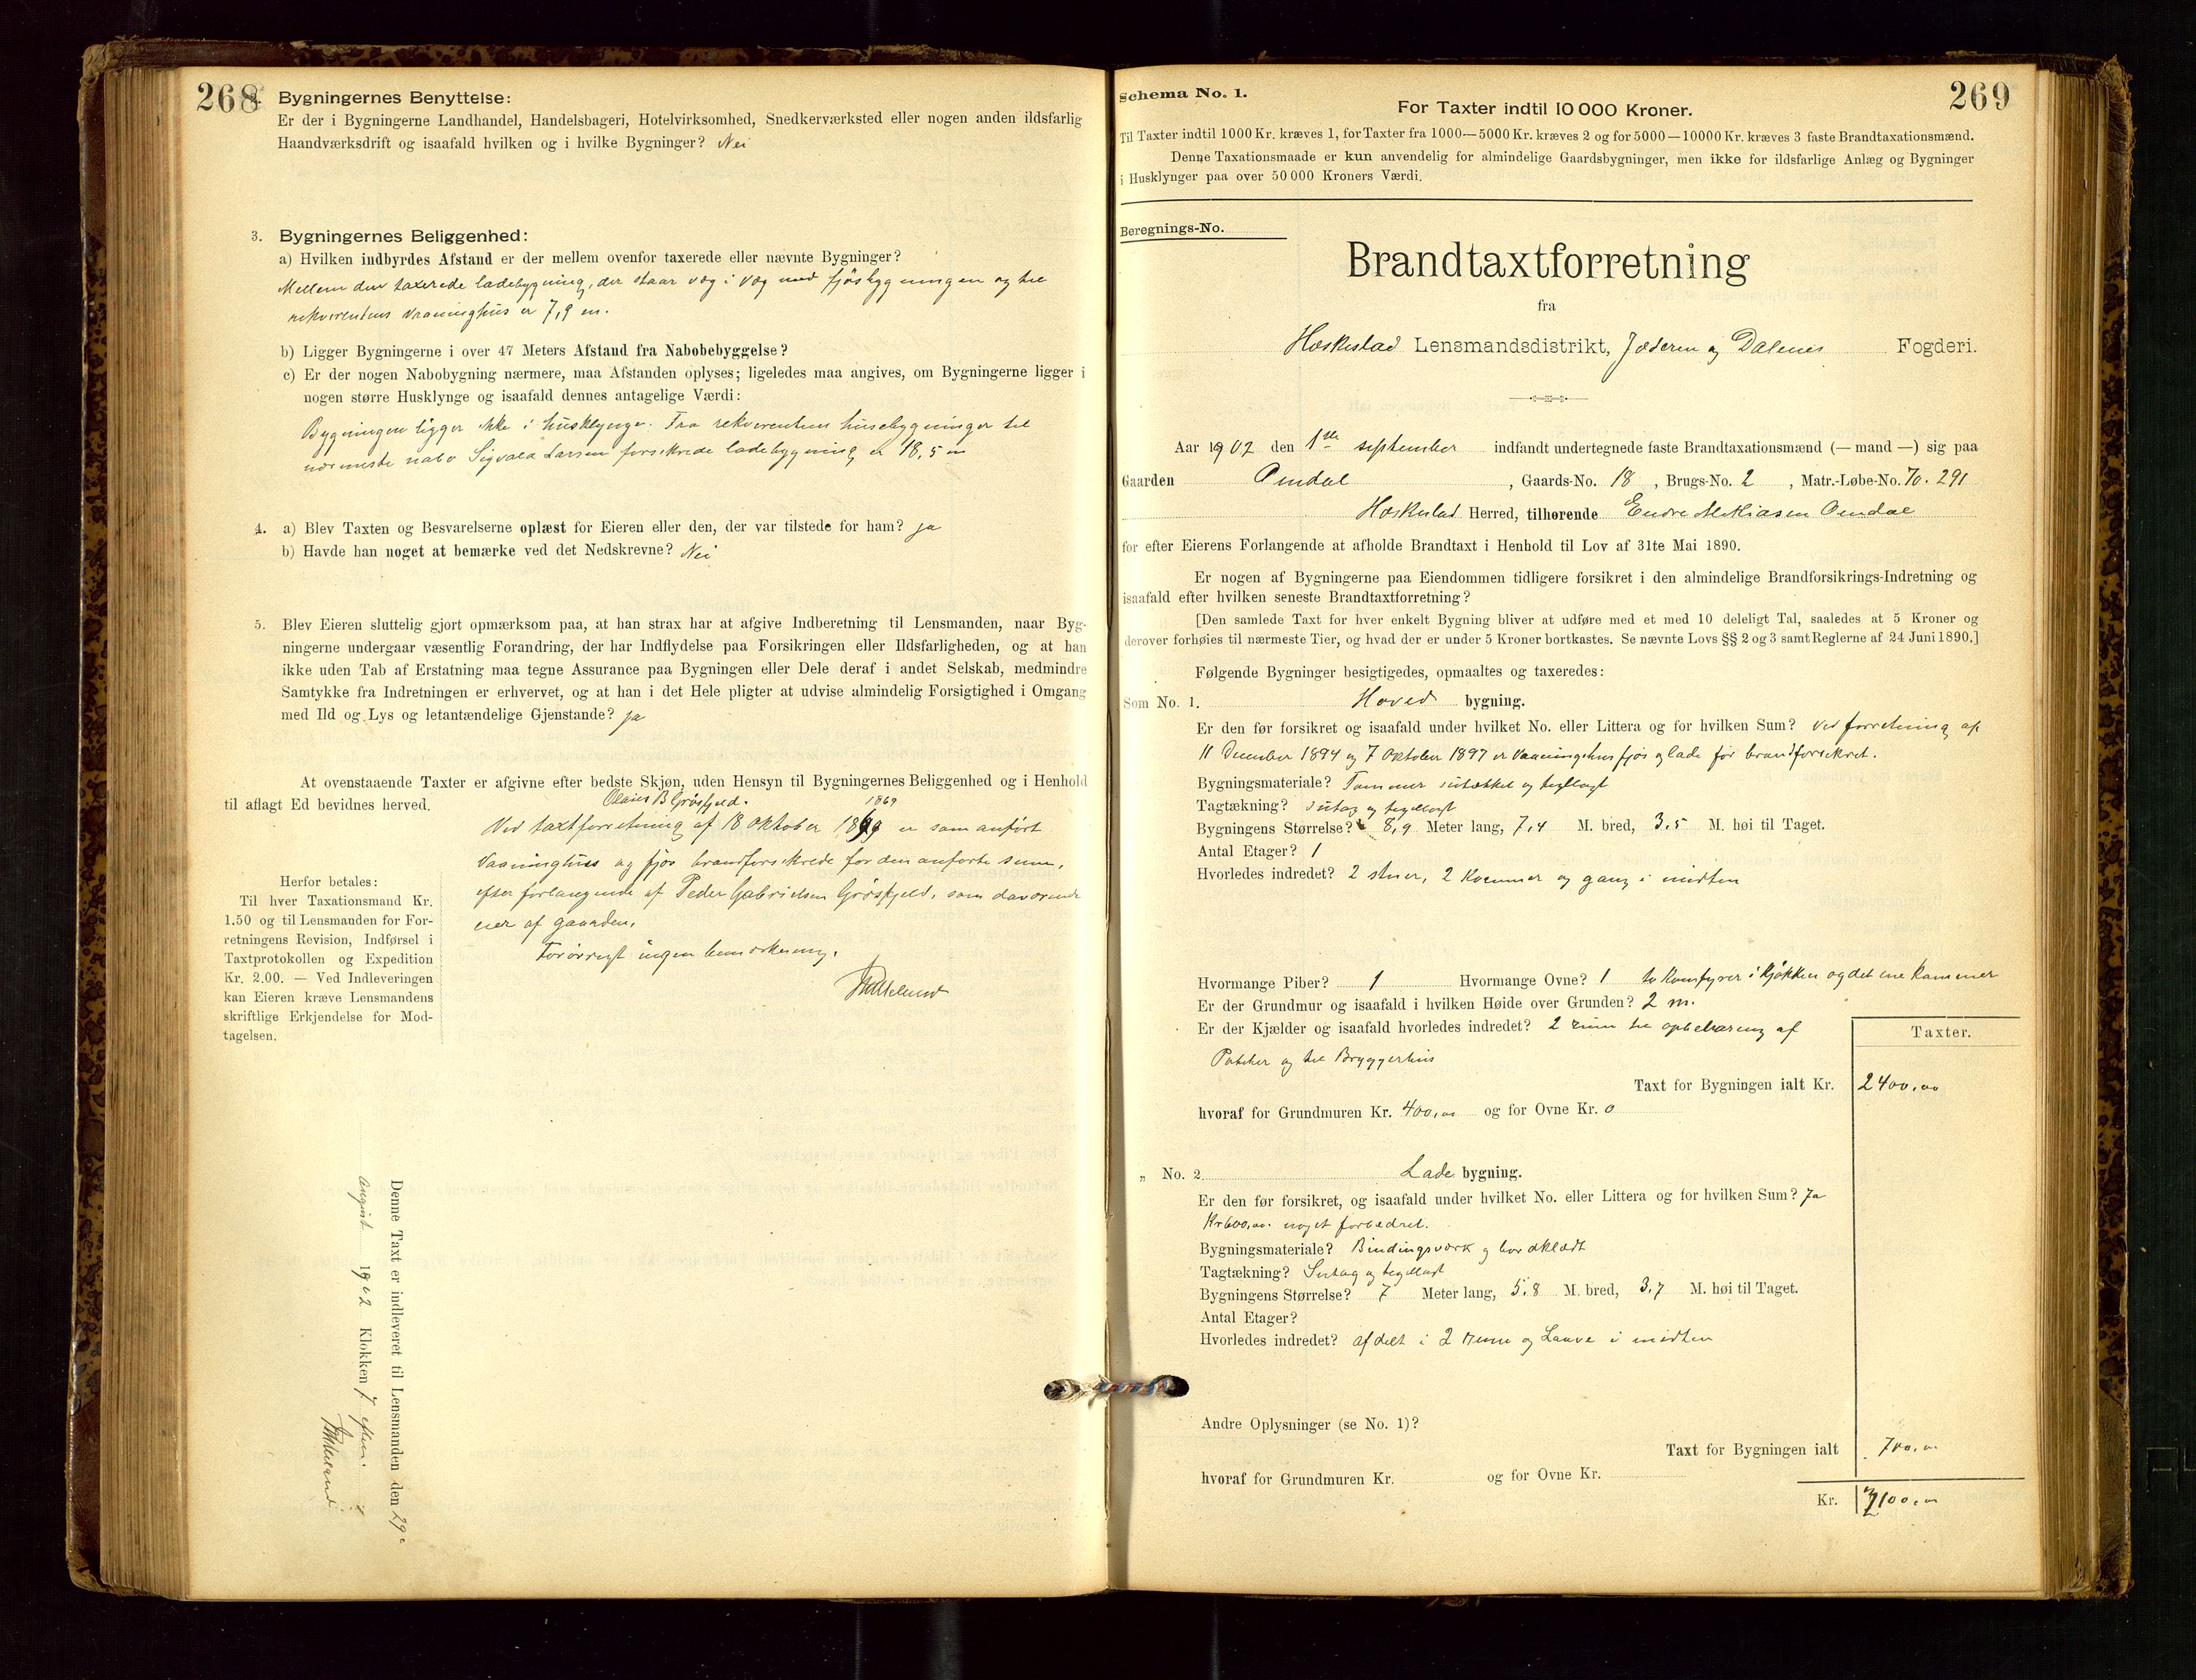 268
2. Bygningernes Benyttelse:
Er der i Bygningerne Landhandel, Handelsbageri, Hotelvirksomhed, Snedkerværksted eller nogen anden ildsfarlig
Haandværksdrift og isaafald hvilken og i hvilke Bygninger? Nei
3. Bygningernes Beliggenhed:
a) Hvilken indbyrdes Afstand er der mellem ovenfor taxerede eller nævnte Bygninger?
Mellem den taxerede ladebygning, der staar væg i væg med fjøsbygningen og til
rekvirentens Vaaninghus er 7,9 m.
b) Ligger Bygningerne i over 47 Meters Afstand fra Nabobebyggelse?
c) Er der nogen Nabobygning nærmere, maa Afstanden oplyses; ligeledes maa angives, om Bygningerne ligger i
nogen større Husklynge og isaafald dennes antagelige Værdi:
Bygningen ligger ikke i husklynge. Fra rekvirentens husebygninger til
nærmeste nabo Sigvald Larsen forsikrede ladebygning er 18,5 m
4. a) Blev Taxten og Besvarelserne oplæst for Eieren eller den, der var tilstede for ham? ja
b) Havde han noget at bemærke ved det Nedskrevne? Nei
5. Blev Eieren sluttelig gjort opmærksom paa, at han strax har at afgive Indberetning til Lensmanden, naar Byg-
ningerne undergaar væsentlig Forandring, der har Indflydelse paa Forsikringen eller Ildsfarligheden, og at han
ikke uden Tab af Erstatning maa tegne Assurance paa Bygningen eller Dele deraf i andet Selskab, medmindre
Samtykke fra Indretningen er erhvervet, og at han i det Hele pligter at udvise almindelig Forsigtighed i Omgang
med Ild og Lys og letantændelige Gjenstande? ja
At ovenstaaende Taxter er afgivne efter bedste Skjøn, uden Hensyn til Bygningernes Beliggenhed og i Henhold
til aflagt Ed bevidnes herved.
Olaus B Grøsfjeld. 1869
Ved taxtforretning af 18 Oktober 1869 er som anført
Vaaninghus og fjøs brandforsikrede for den anførte sum,
efter forlangende af Peder Gabrielsen Grøsfjeld, som daværende
eier af gaarden.
Forøvrigt ingen bemærkning.
Herfor betales:
Til hver Taxationsmand Kr.
1.50 og til Lensmanden for For-
retningens Revision, Indførsel i
Taxtprotokollen og Expedition
Kr. 2.00. — Ved Indleveringen
kan Eieren kræve Lensmandens
skriftlige Erkjendelse for Mod-
tagelsen.
Denne Taxt er indleveret til Lensmanden den 29
August 1902 Klokken 7 efterm.
269
Schema No. 1.
For Taxter indtil 10 000 Kroner.
Til Taxter indtil 1000 Kr. kræves 1, for Taxter fra 1000—5000 Kr. kræves 2 og for 5000—10000 Kr. kræves 3 faste Brandtaxationsmænd.
Denne Taxationsmaade er kun anvendelig for almindelige Gaardsbygninger, men ikke for ildsfarlige Anlæg og Bygninger
i Husklynger paa over 50 000 Kroners Værdi.
Beregnings-No.
Brandtaxtforretning
fra
Heskestad Lensmandsdistrikt, Jæderen og Dalenes Fogderi.
Aar 1902 den 1ste september indfandt undertegnede faste Brandtaxationsmænd (— mand —) sig paa
Gaarden Omdal, Gaards-No. 18, Brugs-No. 2, Matr.-Løbe-No. 70. 291
Heskestad Herred, tilhørende Endre Mikiasen Omdal
for efter Eierens Forlangende at afholde Brandtaxt i Henhold til Lov af 31te Mai 1890.
Er nogen af Bygningerne paa Eiendommen tidligere forsikret i den almindelige Brandforsikrings-Indretning og
isaafald efter hvilken seneste Brandtaxtforretning?
[Den samlede Taxt for hver enkelt Bygning bliver at udføre med et med 10 deleligt Tal, saaledes at 5 Kroner og
derover forhøies til nærmeste Tier, og hvad der er under 5 Kroner bortkastes. Se nævnte Lovs §§ 2 og 3 samt Reglerne af 24 Juni 1890.]
Følgende Bygninger besigtigedes, opmaaltes og taxeredes:
Som No. 1. Hoved bygning.
Er den før forsikret og isaafald under hvilket No. eller Littera og for hvilken Sum? Ved forretning af
11 December 1894 og 7 Oktober 1897 er Vaaningshus fjøs og lade før brandforsikret.
Bygningsmateriale? Tømmer sutækket og teglagt
Tagtækning? sutag og tegllagt
Bygningens Størrelse? 8,9 Meter lang, 7,4 M. bred, 3.5 M. høi til Taget.
Antal Etager? 1
Hvorledes indredet? 2 stuer, 2 Kammer og gang i midten
Hvormange Piber? 1 Hvormange Ovne? 1 to Komfyrer i Kjøkken og det ene Kammer
Er der Grundmur og isaafald i hvilken Høide over Grunden? 2 m.
Er der Kjælder og isaafald hvorledes indredet? 2 rum til opbevaring af
Poteter og til Bryggerhus
Taxter.
Taxt for Bygningen ialt Kr. 2400,00
hvoraf for Grundmuren Kr. 400,00 og for Ovne Kr. 0
„ No. 2 Lade bygning.
Er den før forsikret, og isaafald under hvilket No. eller Littera og for hvilken Sum? Ja
Kr 600,00. noget forbedret.
Bygningsmateriale? Bindingsværk og bordklædt
Tagtækning? Sutag og tegllagt
Bygningens Størrelse? 7 Meter lang, 5.8 M. bred, 3,7 M. høi til Taget.
Antal Etager?
Hvorledes indredet? afdelt i 2 rum og Laave i midten
Andre Oplysninger (se No. 1)?
Taxt for Bygningen ialt 700,00
hvoraf for Grundmuren Kr. og for Ovne Kr.
Kr. 3100,00